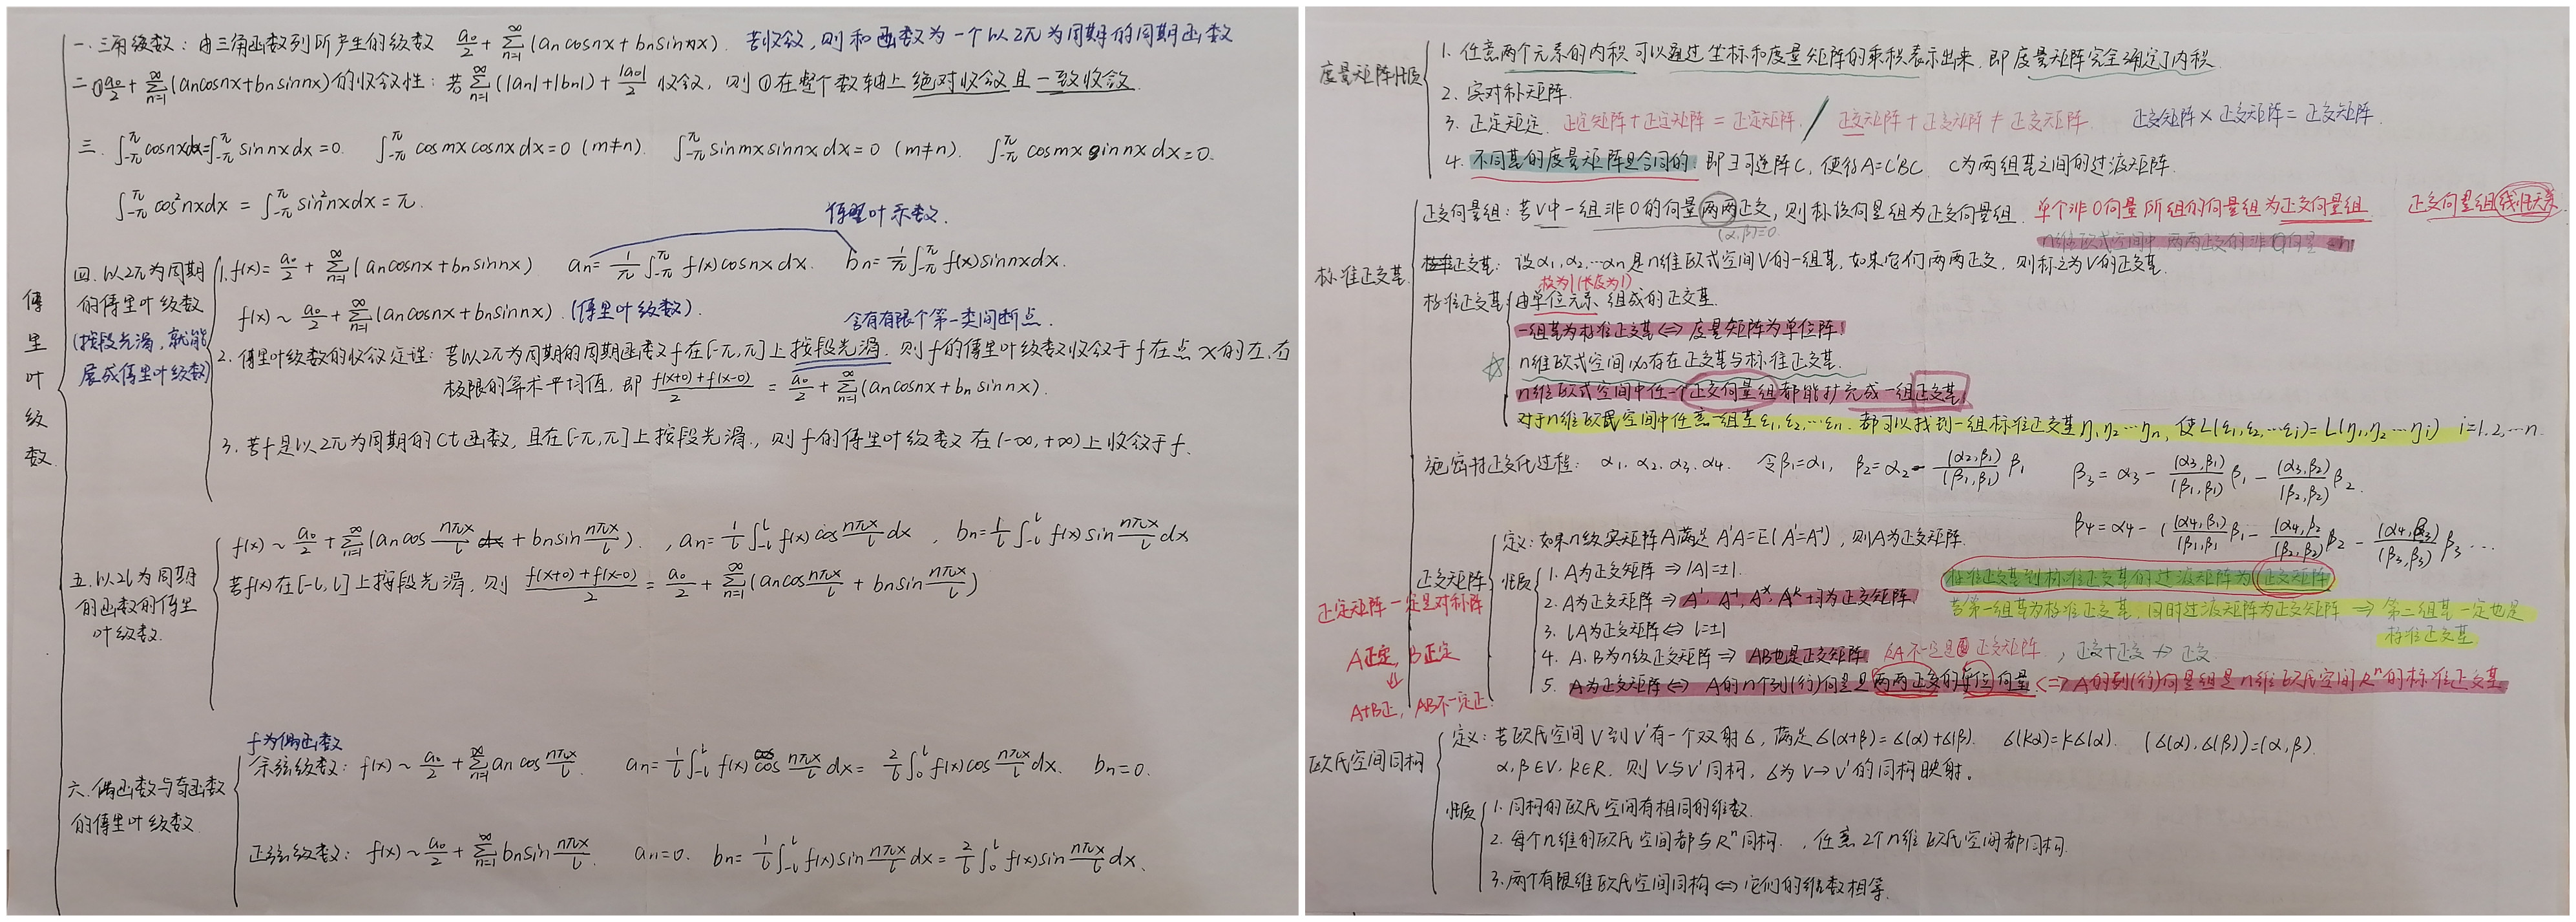 傅里叶级数
一. 三角级数: 由三角函数列所产生的级数 a₀/2 + ∑_{n=1}^{∞}(aₙcosnx + bₙsinnx). 若收敛, 则和函数为一个以2π为周期的周期函数
二 ① a₀/2 + ∑_{n=1}^{∞}(aₙcosnx + bₙsinnx)的收敛性: 若∑_{n=1}^{∞}(|aₙ|+|bₙ|) + |a₀|/2 收敛, 则①在整个数轴上绝对收敛且一致收敛.
三. ∫_{-π}^{π}cosnxdx = ∫_{-π}^{π}sinnxdx = 0. ∫_{-π}^{π}cosmxcosnxdx = 0 (m≠n). ∫_{-π}^{π}sinmxsinnxdx = 0 (m≠n). ∫_{-π}^{π}cosmxsinnxdx = 0.
∫_{-π}^{π}cos²nxdx = ∫_{-π}^{π}sin²nxdx = π.
傅里叶系数.
四. 以2π为周期的傅里叶级数
(按段光滑, 就能展成傅里叶级数)
1. f(x) = a₀/2 + ∑_{n=1}^{∞}(aₙcosnx + bₙsinnx) aₙ = 1/π ∫_{-π}^{π} f(x)cosnxdx. bₙ = 1/π ∫_{-π}^{π} f(x)sinnxdx.
f(x) ~ a₀/2 + ∑_{n=1}^{∞}(aₙcosnx + bₙsinnx). (傅里叶级数).
含有有限个第一类间断点.
2. 傅里叶级数的收敛定理: 若以2π为周期的周期函数f在[-π,π]上按段光滑, 则f的傅里叶级数收敛于f在点x的左、右
极限的算术平均值, 即 (f(x+0)+f(x-0))/2 = a₀/2 + ∑_{n=1}^{∞}(aₙcosnx + bₙsinnx).
3. 若f是以2π为周期的Ct函数, 且在[-π,π]上按段光滑, 则f的傅里叶级数在(-∞,+∞)上收敛于f.
五. 以2l为周期的函数的傅里叶级数.
f(x) ~ a₀/2 + ∑_{n=1}^{∞}(aₙcos nπx/l + bₙsin nπx/l). , aₙ = 1/l ∫_{-l}^{l} f(x)cos nπx/l dx , bₙ = 1/l ∫_{-l}^{l} f(x)sin nπx/l dx
若f(x)在[-l,l]上按段光滑, 则 (f(x+0)+f(x-0))/2 = a₀/2 + ∑_{n=1}^{∞}(aₙcos nπx/l + bₙsin nπx/l)
六. 偶函数与奇函数的傅里叶级数
f为偶函数
余弦级数: f(x) ~ a₀/2 + ∑_{n=1}^{∞} aₙcos nπx/l. aₙ = 1/l ∫_{-l}^{l} f(x)cos nπx/l dx = 2/l ∫_{0}^{l} f(x)cos nπx/l dx. bₙ=0.
正弦级数: f(x) ~ a₀/2 + ∑_{n=1}^{∞} bₙsin nπx/l. aₙ=0. bₙ = 1/l ∫_{-l}^{l} f(x)sin nπx/l dx = 2/l ∫_{0}^{l} f(x)sin nπx/l dx.
度量矩阵性质
1. 任意两个元素的内积可以通过坐标和度量矩阵的乘积表示出来, 即度量矩阵完全确定了内积.
2. 实对称矩阵.
3. 正定矩定. 正定矩阵+正定矩阵=正定矩阵. / 正交矩阵+正交矩阵≠正交矩阵. 正交矩阵×正交矩阵=正交矩阵.
4. 不同基的度量矩阵是合同的. 即∃可逆阵C, 使得A=C'BC. C为两组基之间的过渡矩阵.
标准正交基
正交向量组: 若V中一组非0的向量两两正交, 则称该向量组为正交向量组. 单个非0向量所组的向量组为正交向量组. 正交向量组线性无关.
(α,β)=0.
n维欧式空间中两两正交的非0向量≤n
正交基: 设α₁,α₂,…αn是n维欧式空间V的一组基, 如果它们两两正交, 则称之为V的正交基.
模为1(长度为1)
标准正交基 由单位元素组成的正交基.
一组基为标准正交基⇔度量矩阵为单位阵!
n维欧式空间必存在正交基与标准正交基.
☆ n维欧式空间中任一个正交向量组都能扩充成一组正交基!
对于n维欧氏空间中任意一组基ε₁,ε₂,…εn. 都可以找到一组标准正交基η₁,η₂…ηn, 使L(ε₁,ε₂,…εi)=L(η₁,η₂…ηi) i=1,2,…n.
施密特正交化过程: α₁, α₂, α₃, α₄. 令β₁=α₁, β₂=α₂-(α₂,β₁)/(β₁,β₁) β₁ β₃=α₃-(α₃,β₁)/(β₁,β₁) β₁-(α₃,β₂)/(β₂,β₂) β₂.
β₄=α₄-(α₄,β₁)/(β₁,β₁ β₁-(α₄,β₂/(β₂,β₂) β₂-(α₄,β₃)/(β₃,β₃) β₃ …
正交矩阵
定义: 如果n级实矩阵A满足A'A=E(A'=A⁻¹), 则A为正交矩阵.
性质
1. A为正交矩阵⇒|A|=±1.
2. A为正交矩阵⇒A', A⁻¹, A*, Aᵏ均为正交矩阵!
3. lA为正交矩阵⇔l=±1
4. A.B为n级正交矩阵⇒AB也是正交矩阵 kA不一定是正交矩阵, 正交+正交⇏正交
5. A为正交矩阵⇔A的n个列(行)向量是两两正交的单位向量⇔A的列(行)向量组是n维欧氏空间Rⁿ的标准正交基
标准正交基到标准正交基的过渡矩阵为正交矩阵
若第一组基为标准正交基, 同时过渡矩阵为正交矩阵⇒第二组基一定也是
标准正交基
正定矩阵一定是对称阵
A正定, B正定
⇓
A+B正, AB不一定正.
欧氏空间同构
定义: 若欧氏空间V到V'有一个双射σ, 满足σ(α+β)=σ(α)+σ(β). σ(kα)=kσ(α). (σ(α),σ(β))=(α,β).
α,β∈V, k∈R. 则V与V'同构, σ为V→V'的同构映射。
性质
1. 同构的欧氏空间有相同的维数.
2. 每个n维的欧氏空间都与Rⁿ同构., 任意2个n维欧氏空间都同构.
3. 两个有限维欧氏空间同构⇔它们的维数相等.